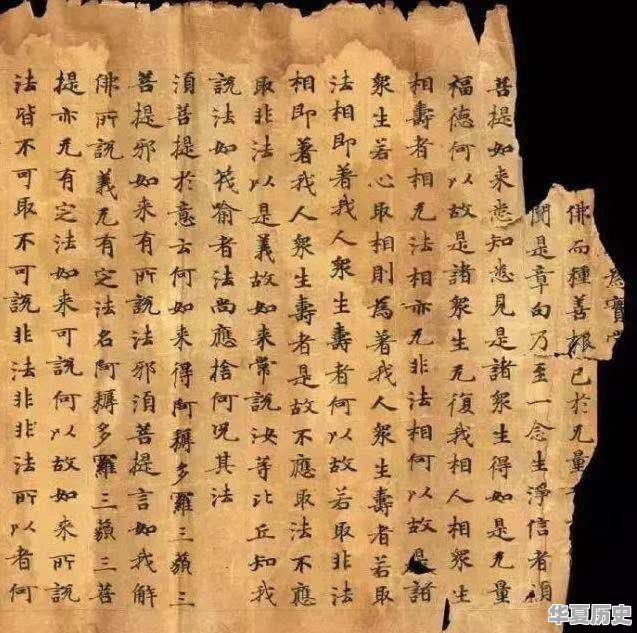 為實
佛而種善根已於无量
聞是章句乃至一念生淨信者須
菩提如来悉知悉見是諸衆生得如是无量
福德何以故是諸衆生无復我相人相衆生
相壽者相无法相亦无非法相何以故是諸
衆生若心取相則為著我人衆生壽者若取
法相即著我人衆生壽者何以故若取非法
相即著我人衆生壽者是故不應取法不應
取非法以是義故如来常説汝等比丘知我
説法如筏喻者法尚應捨何况其法
須菩提於意云何如来得阿耨多羅三藐三
菩提邪如来有所説法邪須菩提言如我解
佛所説義无有定法名阿耨多羅三藐三菩
提亦无有定法如来可説何以故如来所説
法皆不可取不可説非法非非法所以者何
华夏历史